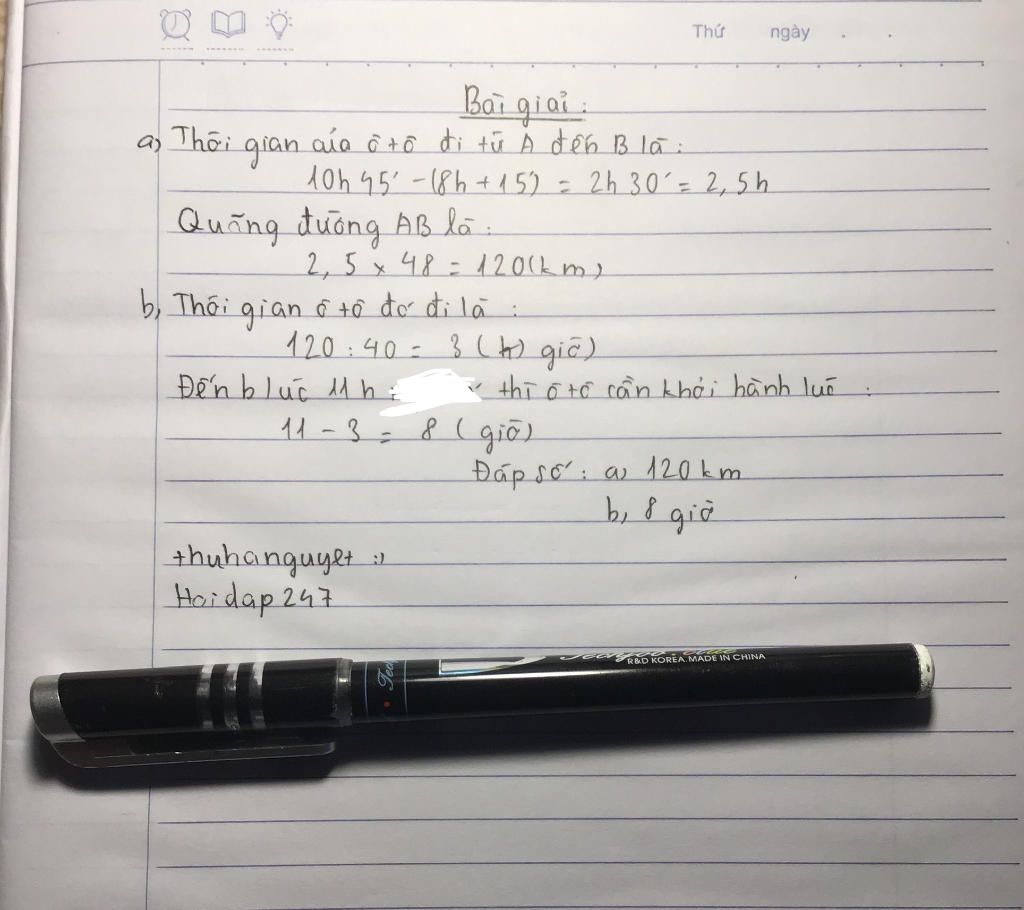 Thứ ngày . .
Bài giải :
a, Thời gian của ô tô đi từ A đến B là :
10h 45' - (8h + 15') = 2h 30' = 2,5h
Quãng đường AB là :
2,5 × 48 = 120(km)
b, Thời gian ô tô đó đi là :
120 : 40 = 3 ( giờ)
Đến b lúc 11 h thì ô tô cần khởi hành lúc :
11 - 3 = 8 ( giờ)
Đáp số : a, 120 km
b, 8 giờ
thuhanguyet :,
Hoidap 247
R&D KOREA.MADE IN CHINA